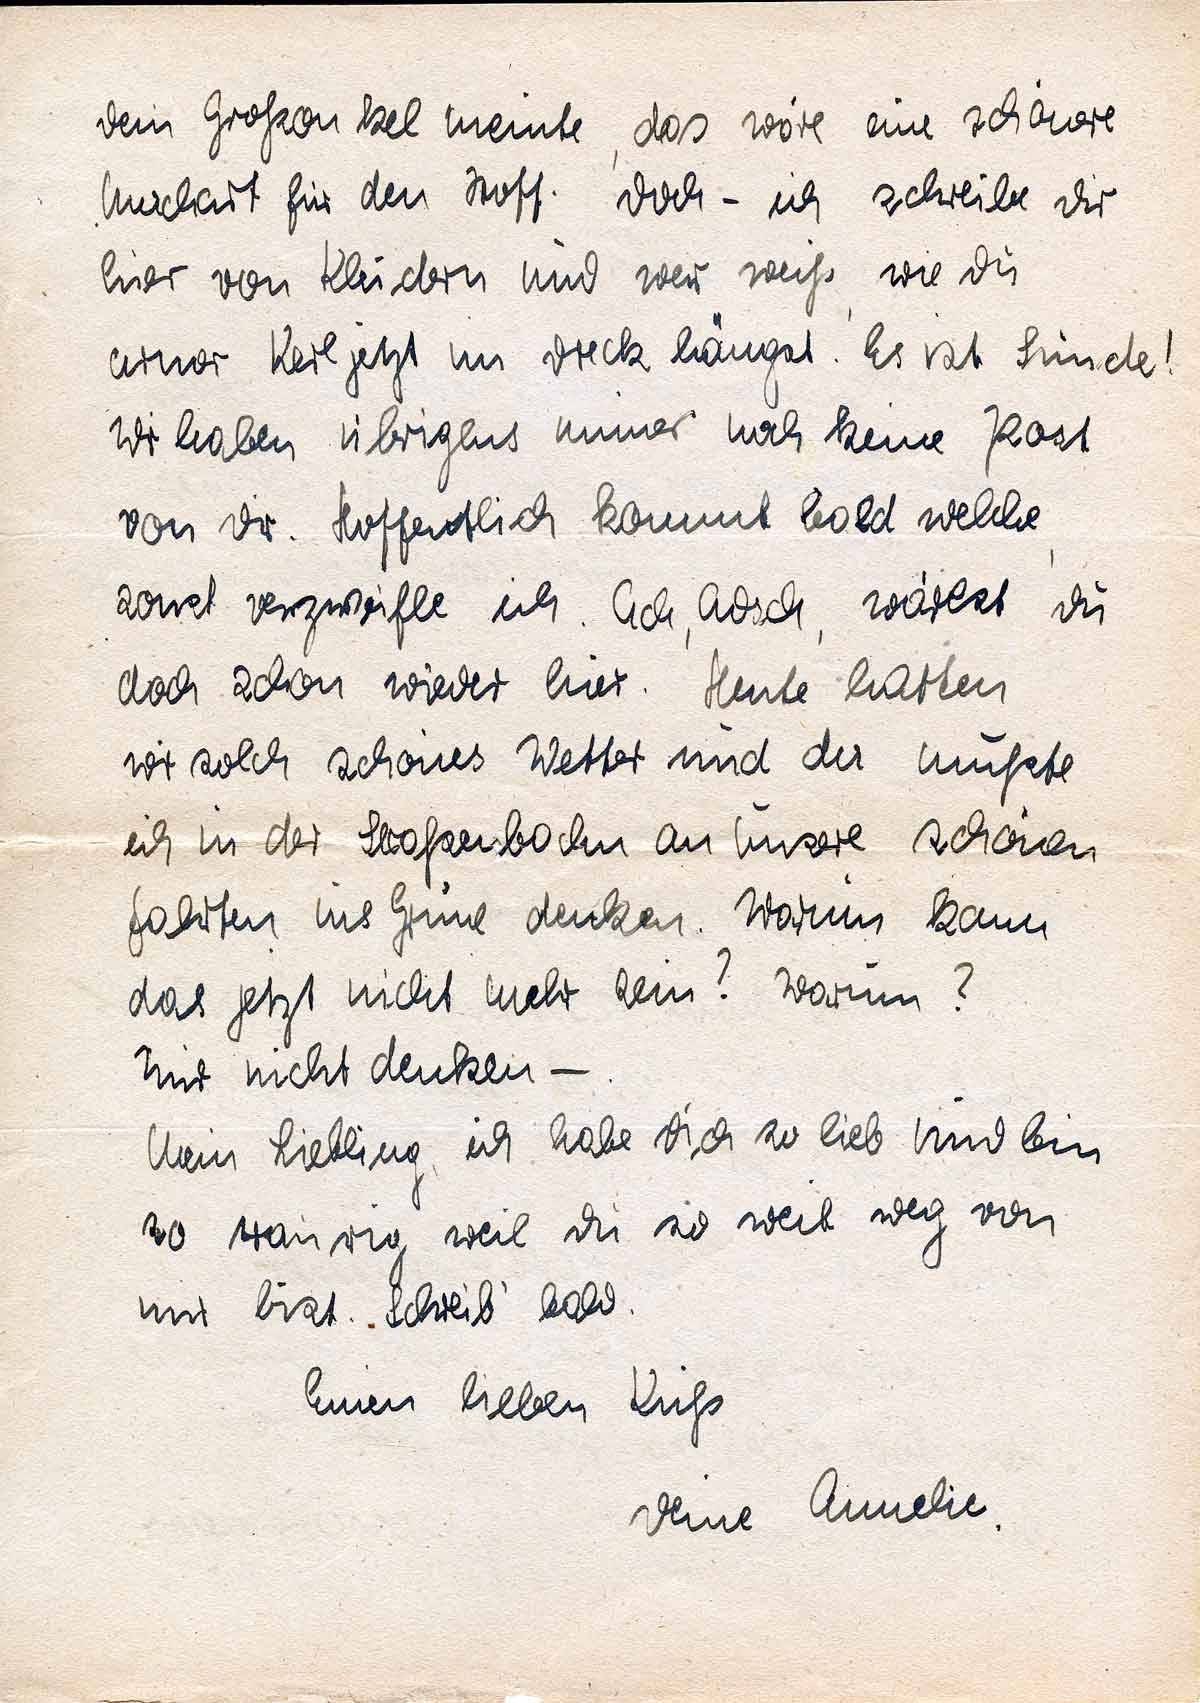 Dein Großonkel meinte, das wäre eine schönere
Machart für den Stoff. Doch - ich schreibe Dir
hier von Kleidern und wer weiß, wie Du
armer Kerl jetzt im Dreck hängst. Es ist Sünde!
Wir haben übrigens immer noch keine Post
von Dir. Hoffentlich kommt bald welche,
sonst verzweifle ich. Ach, Adsch, wärest Du
doch schon wieder hier. Heute hatten
wir solch schönes Wetter und da mußte
ich in der Straßenbahn an unsere schönen
Fahrten ins Grüne denken. Warum kann
das jetzt nicht mehr sein? Warum?
Nur nicht denken —.
Mein Liebling, ich habe Dich so lieb und bin
so traurig weil Du so weit weg von
mir bist. Schreib' bald.
Einen lieben Kuß
Deine Annelie.